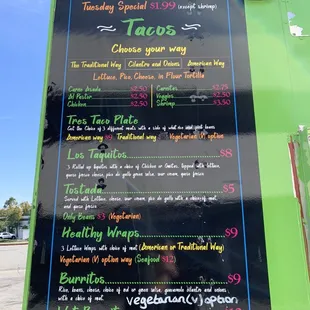 Tuesday Special $1.99 (except shrimp)
Tacos
Choose your way
The Traditional Way | Cilantro and Onions | American Way
Lettuce, Pico, Cheese, in Flour Tortilla
Carne Asada $2.50 Carnitas
Al Pastor $2.50 Veggies
Chicken $2.50 Shrimp $3.50
Tres Taco Plate
Get the choice of 3 different meats with a side of
American way Traditional way Vegetarian (V) option
Los Taquitos $8
3 Rolled up taquitos with a choice of Chicken or topped with lettuce,
queso fresco cheese, pico de gallo
Tostada $5
Served with Lettuce, cheese, sour cream, pico de gallo with a choice of meat,
and queso fresco
Only Beans $3 (Vegetarian)
Healthy Wraps $9
3 Lettuce Wraps with choice of meat (American or Traditional Way)
Vegetarian (V) option way (Seafood $12)
Burritos $9
Rice, beans, cheese, choice of red or green salsa, guacamole, cilantro and onions,
with a choice of meat
vegetarian(v) option